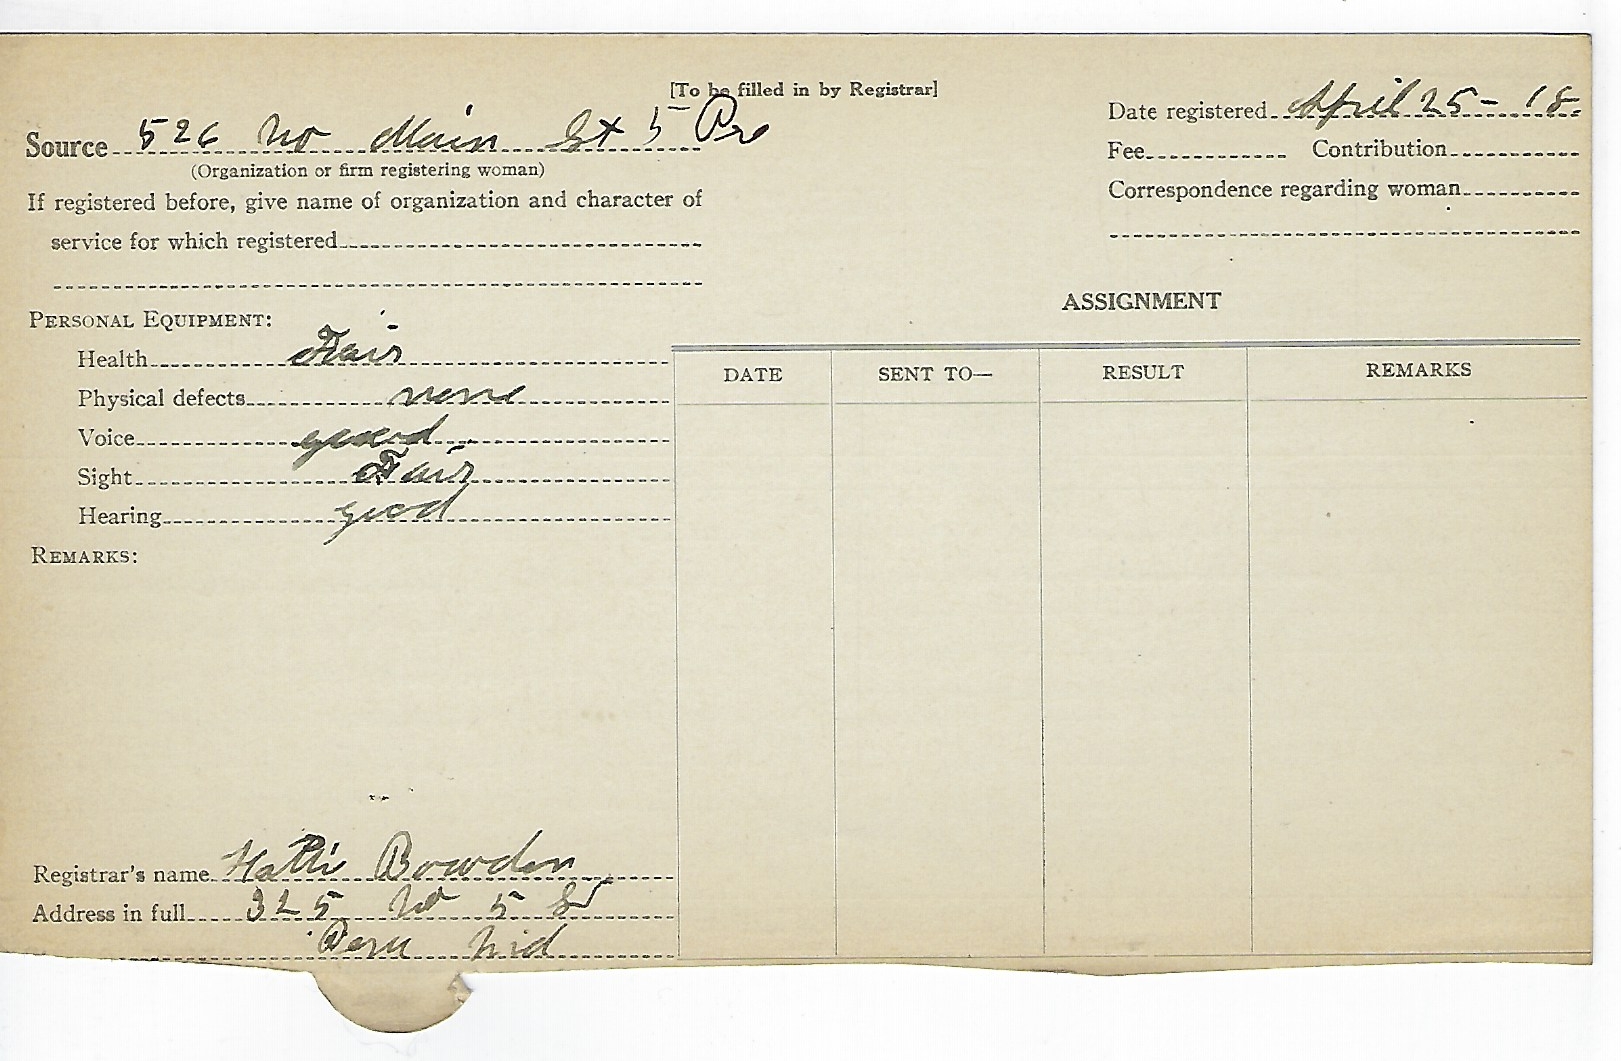 [To be filled in by Registrar]
Date registered April 25 - 18
Source 526 No Main St 5 Pre
(Organization or firm registering woman)
Fee Contribution
If registered before, give name of organization and character of
Correspondence regarding woman
service for which registered
ASSIGNMENT
PERSONAL EQUIPMENT:
Health Fair
DATE SENT TO— RESULT REMARKS
Physical defects none
Voice good
Sight Fair
Hearing good
REMARKS:
Registrar's name Hattie Bowden
Address in full 325 No 5 St
Peru Ind